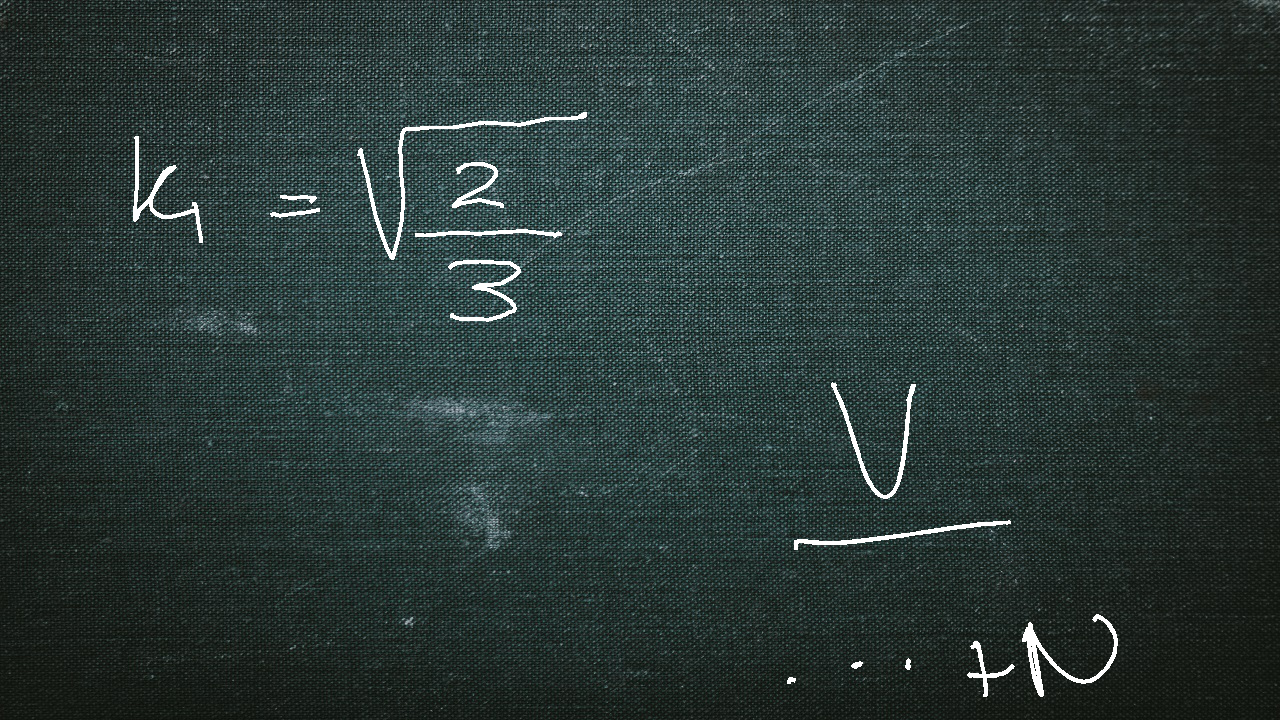 k₁ = √(2/3)
V
... + N